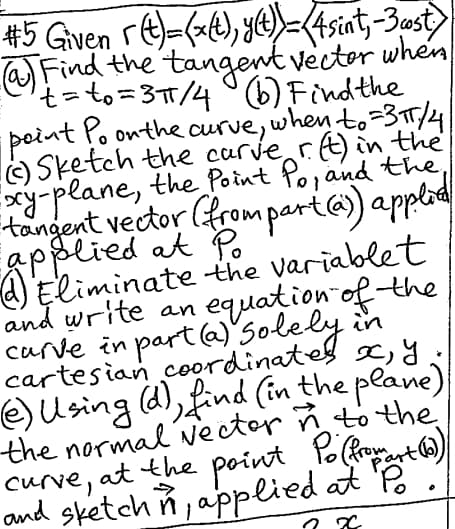 #5 Given r(t)=⟨x(t), y(t)⟩=⟨4sint,-3cost⟩
(a) Find the tangent vector when
t=t₀=3π/4 (b) Find the
point P₀ on the curve, when t₀=3π/4
(c) Sketch the curve r(t) in the
xy-plane, the Point P₀, and the
tangent vector (from part(a)) applied
applied at P₀
(d) Eliminate the variable t
and write an equation of the
curve in part (a) solely in
cartesian coordinates x, y.
(e) Using (d), find (in the plane)
the normal vector n⃗ to the
curve, at the point P₀ (from part (b))
and sketch n⃗, applied at P₀.